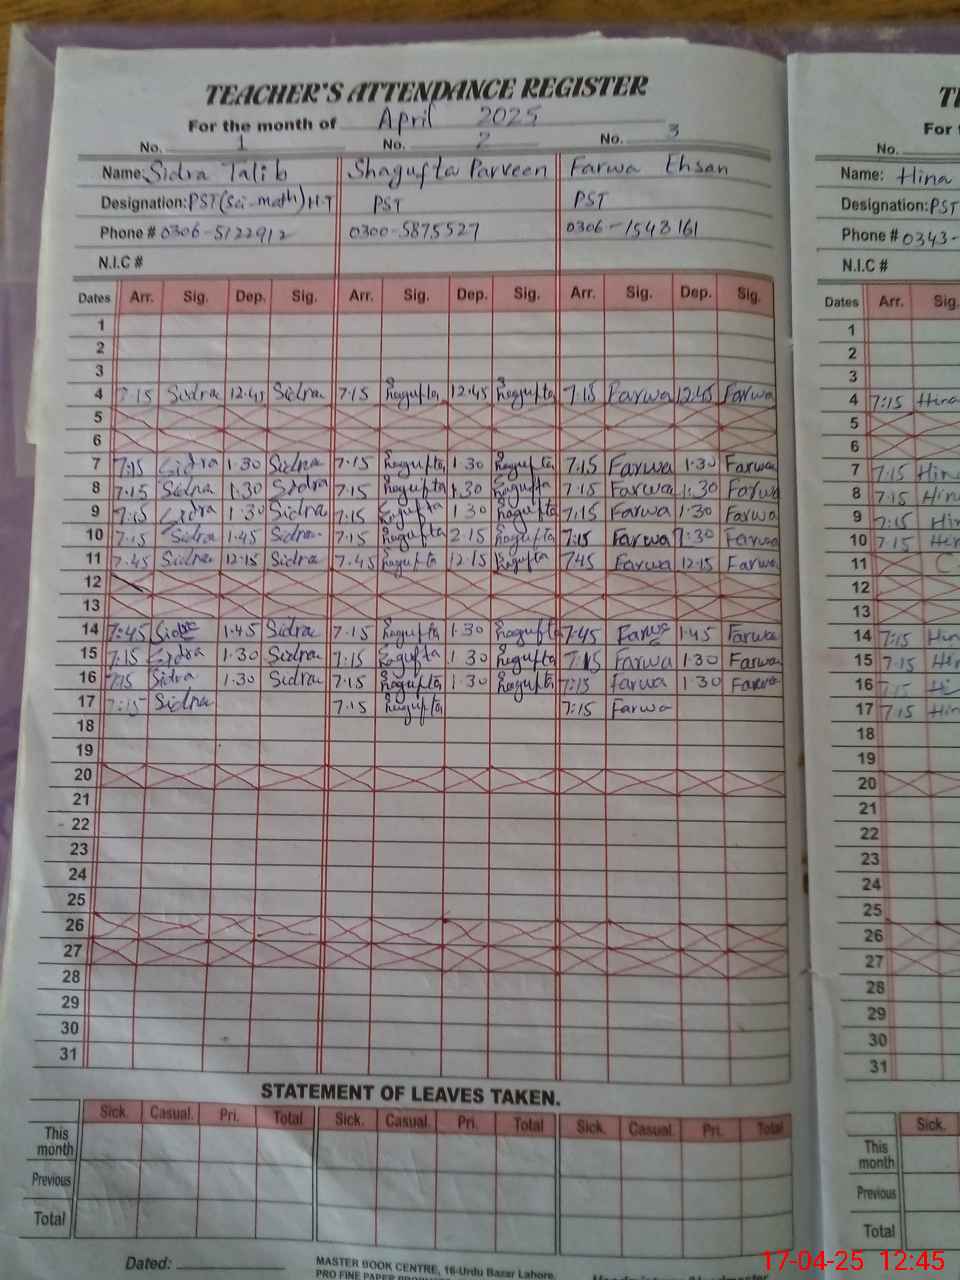 TEACHER'S ATTENDANCE REGISTER
For the month of April 2025
No. 1 No. 2 No. 3
Name: Sidra Talib Shagufta Parveen Farwa Ehsan
Designation: PST(Sci-math)H.T PST PST
Phone # 0306-5122912 0300-5875527 0306-1543161
N.I.C #
Dates Arr. Sig. Dep. Sig. Arr. Sig. Dep. Sig. Arr. Sig. Dep. Sig.
1
2
3
4 7.15 Sidra 12.45 Sidra 7.15 Shagufta 12.45 Shagufta 7.15 Farwa 12.45 Farwa
5
6
7 7:15 Sidra 1.30 Sidra 7.15 Shagufta 1.30 Shagufta 7.15 Farwa 1.30 Farwa
8 7.15 Sidra 1.30 Sidra 7.15 Shagufta 1.30 Shagufta 7.15 Farwa 1.30 Farwa
9 7.15 Sidra 1.30 Sidra 7.15 Shagufta 1.30 Shagufta 7.15 Farwa 1.30 Farwa
10 7.15 Sidra 1.45 Sidra 7.15 Shagufta 2.15 Shagufta 7:15 Farwa 1:30 Farwa
11 7.45 Sidra 12.15 Sidra 7.45 Shagufta 12.15 Shagufta 745 Farwa 12.15 Farwa
12
13
14 7:45 Sidra 1.45 Sidra 7.15 Shagufta 1.30 Shagufta 7:45 Farwa 1.45 Farwa
15 7.15 Sidra 1.30 Sidra 7:15 Shagufta 1.30 Shagufta 7:15 Farwa 1.30 Farwa
16 7.15 Sidra 1.30 Sidra 7.15 Shagufta 1.30 Shagufta 7:15 Farwa 1.30 Farwa
17 7:15 Sidra 7.15 Shagufta 7:15 Farwa
18
19
20
21
22
23
24
25
26
27
28
29
30
31
STATEMENT OF LEAVES TAKEN.
Sick. Casual. Pri. Total Sick. Casual. Pri. Total Sick. Casual. Pri. Total
This month
Previous
Total
Dated:
MASTER BOOK CENTRE, 16-Urdu Bazar Lahore.
For
No.
Name: Hina
Designation: PST
Phone # 0343-
N.I.C #
Dates Arr. Sig.
1
2
3
4 7:15 Hina
5
6
7 7.15 Hin
8 7.15 Hin
9 7:15 Hi
10 7.15 Hin
11 C
12
13
14 7:15 Hin
15 7.15 Hin
16 7.15 Hi
17 7.15 Hin
18
19
20
21
22
23
24
25
26
27
28
29
30
31
Sick.
This month
Previous
Total
17-04-25 12:45